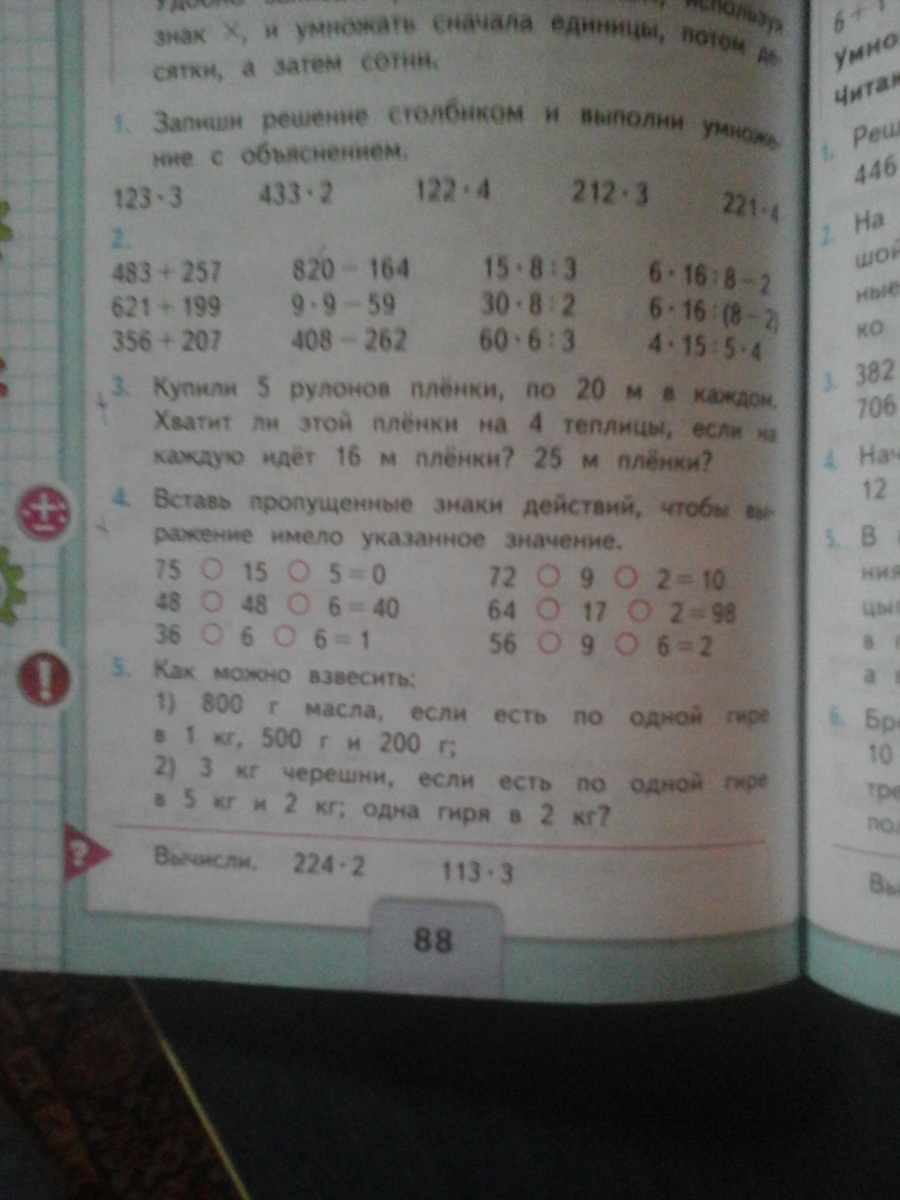 используя
знак ×, и умножать сначала единицы, потом де-
сятки, а затем сотни.
1. Запиши решение столбиком и выполни умноже-
ние с объяснением.
123 · 3 433 · 2 122 · 4 212 · 3 221 · 4
2.
483 + 257 820 − 164 15 · 8 : 3 6 · 16 : 8 − 2
621 + 199 9 · 9 − 59 30 · 8 : 2 6 · 16 : (8 − 2)
356 + 207 408 − 262 60 · 6 : 3 4 · 15 : 5 · 4
3. Купили 5 рулонов плёнки, по 20 м в каждом.
Хватит ли этой плёнки на 4 теплицы, если на
каждую идёт 16 м плёнки? 25 м плёнки?
4. Вставь пропущенные знаки действий, чтобы вы-
ражение имело указанное значение.
75 ○ 15 ○ 5 = 0 72 ○ 9 ○ 2 = 10
48 ○ 48 ○ 6 = 40 64 ○ 17 ○ 2 = 98
36 ○ 6 ○ 6 = 1 56 ○ 9 ○ 6 = 2
5. Как можно взвесить:
1) 800 г масла, если есть по одной гире
в 1 кг, 500 г и 200 г;
2) 3 кг черешни, если есть по одной гире
в 5 кг и 2 кг; одна гиря в 2 кг?
? Вычисли. 224 · 2 113 · 3
88
1.
446
2. На
ко
3. 382
706
4.
12
5. В
в
а
6.
10